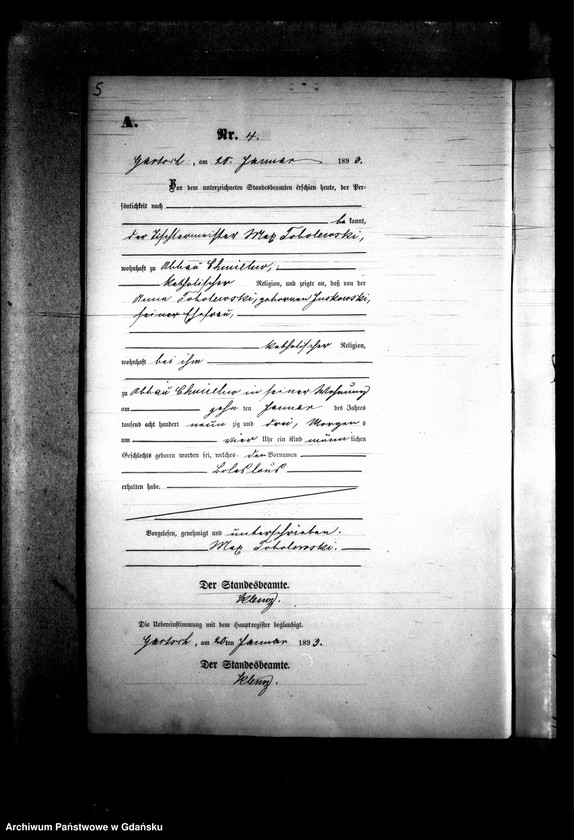 5
A.
Nr. 4.
am 20. Januar 1893.
Vor dem unterzeichneten Standesbeamten erschien heute, der Per-
sönlichkeit nach
be kannt,
der Tischlermeister Max Tobolewski,
wohnhaft zu Abbau Chmielno,
katholischer Religion, und zeigte an, daß von der
Anna Tobolewski, geborenen Juskowski,
seiner Ehefrau,
katholischer Religion,
wohnhaft bei ihm
zu Abbau Chmielno in seiner Wohnung
am zehn ten Januar des Jahres
tausend acht hundert neun zig und drei, Morgens
um vier Uhr ein Kind männ lichen
Geschlechts geboren worden sei, welches den Vornamen
Boleslaus
erhalten habe.
Vorgelesen, genehmigt und unterschrieben.
Max Tobolewski.
Der Standesbeamte.
Die Uebereinstimmung mit dem Hauptregister beglaubigt.
am 20ten Januar 1893.
Der Standesbeamte.
Archiwum Państwowe w Gdańsku